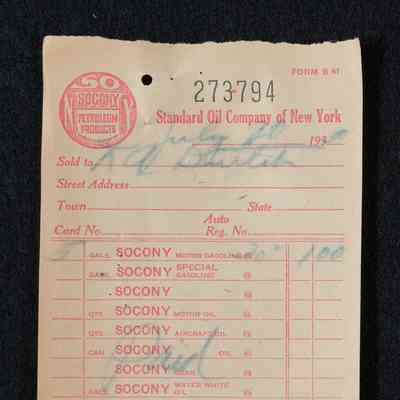 FORM B 61
SO
SOCONY
PETROLEUM
PRODUCTS
273794
Standard Oil Company of New York
July 193
Sold to
Street Address
Town State
Auto
Card No. Reg. No.
GALS. SOCONY MOTOR GASOLINE @ 1 00
GALS. SOCONY SPECIAL GASOLINE @
SOCONY @
QTS. SOCONY MOTOR OIL @
QTS. SOCONY AIRCRAFT OIL @
CAN SOCONY OIL @
SOCONY @
GALS. SOCONY WATER WHITE @
Paid